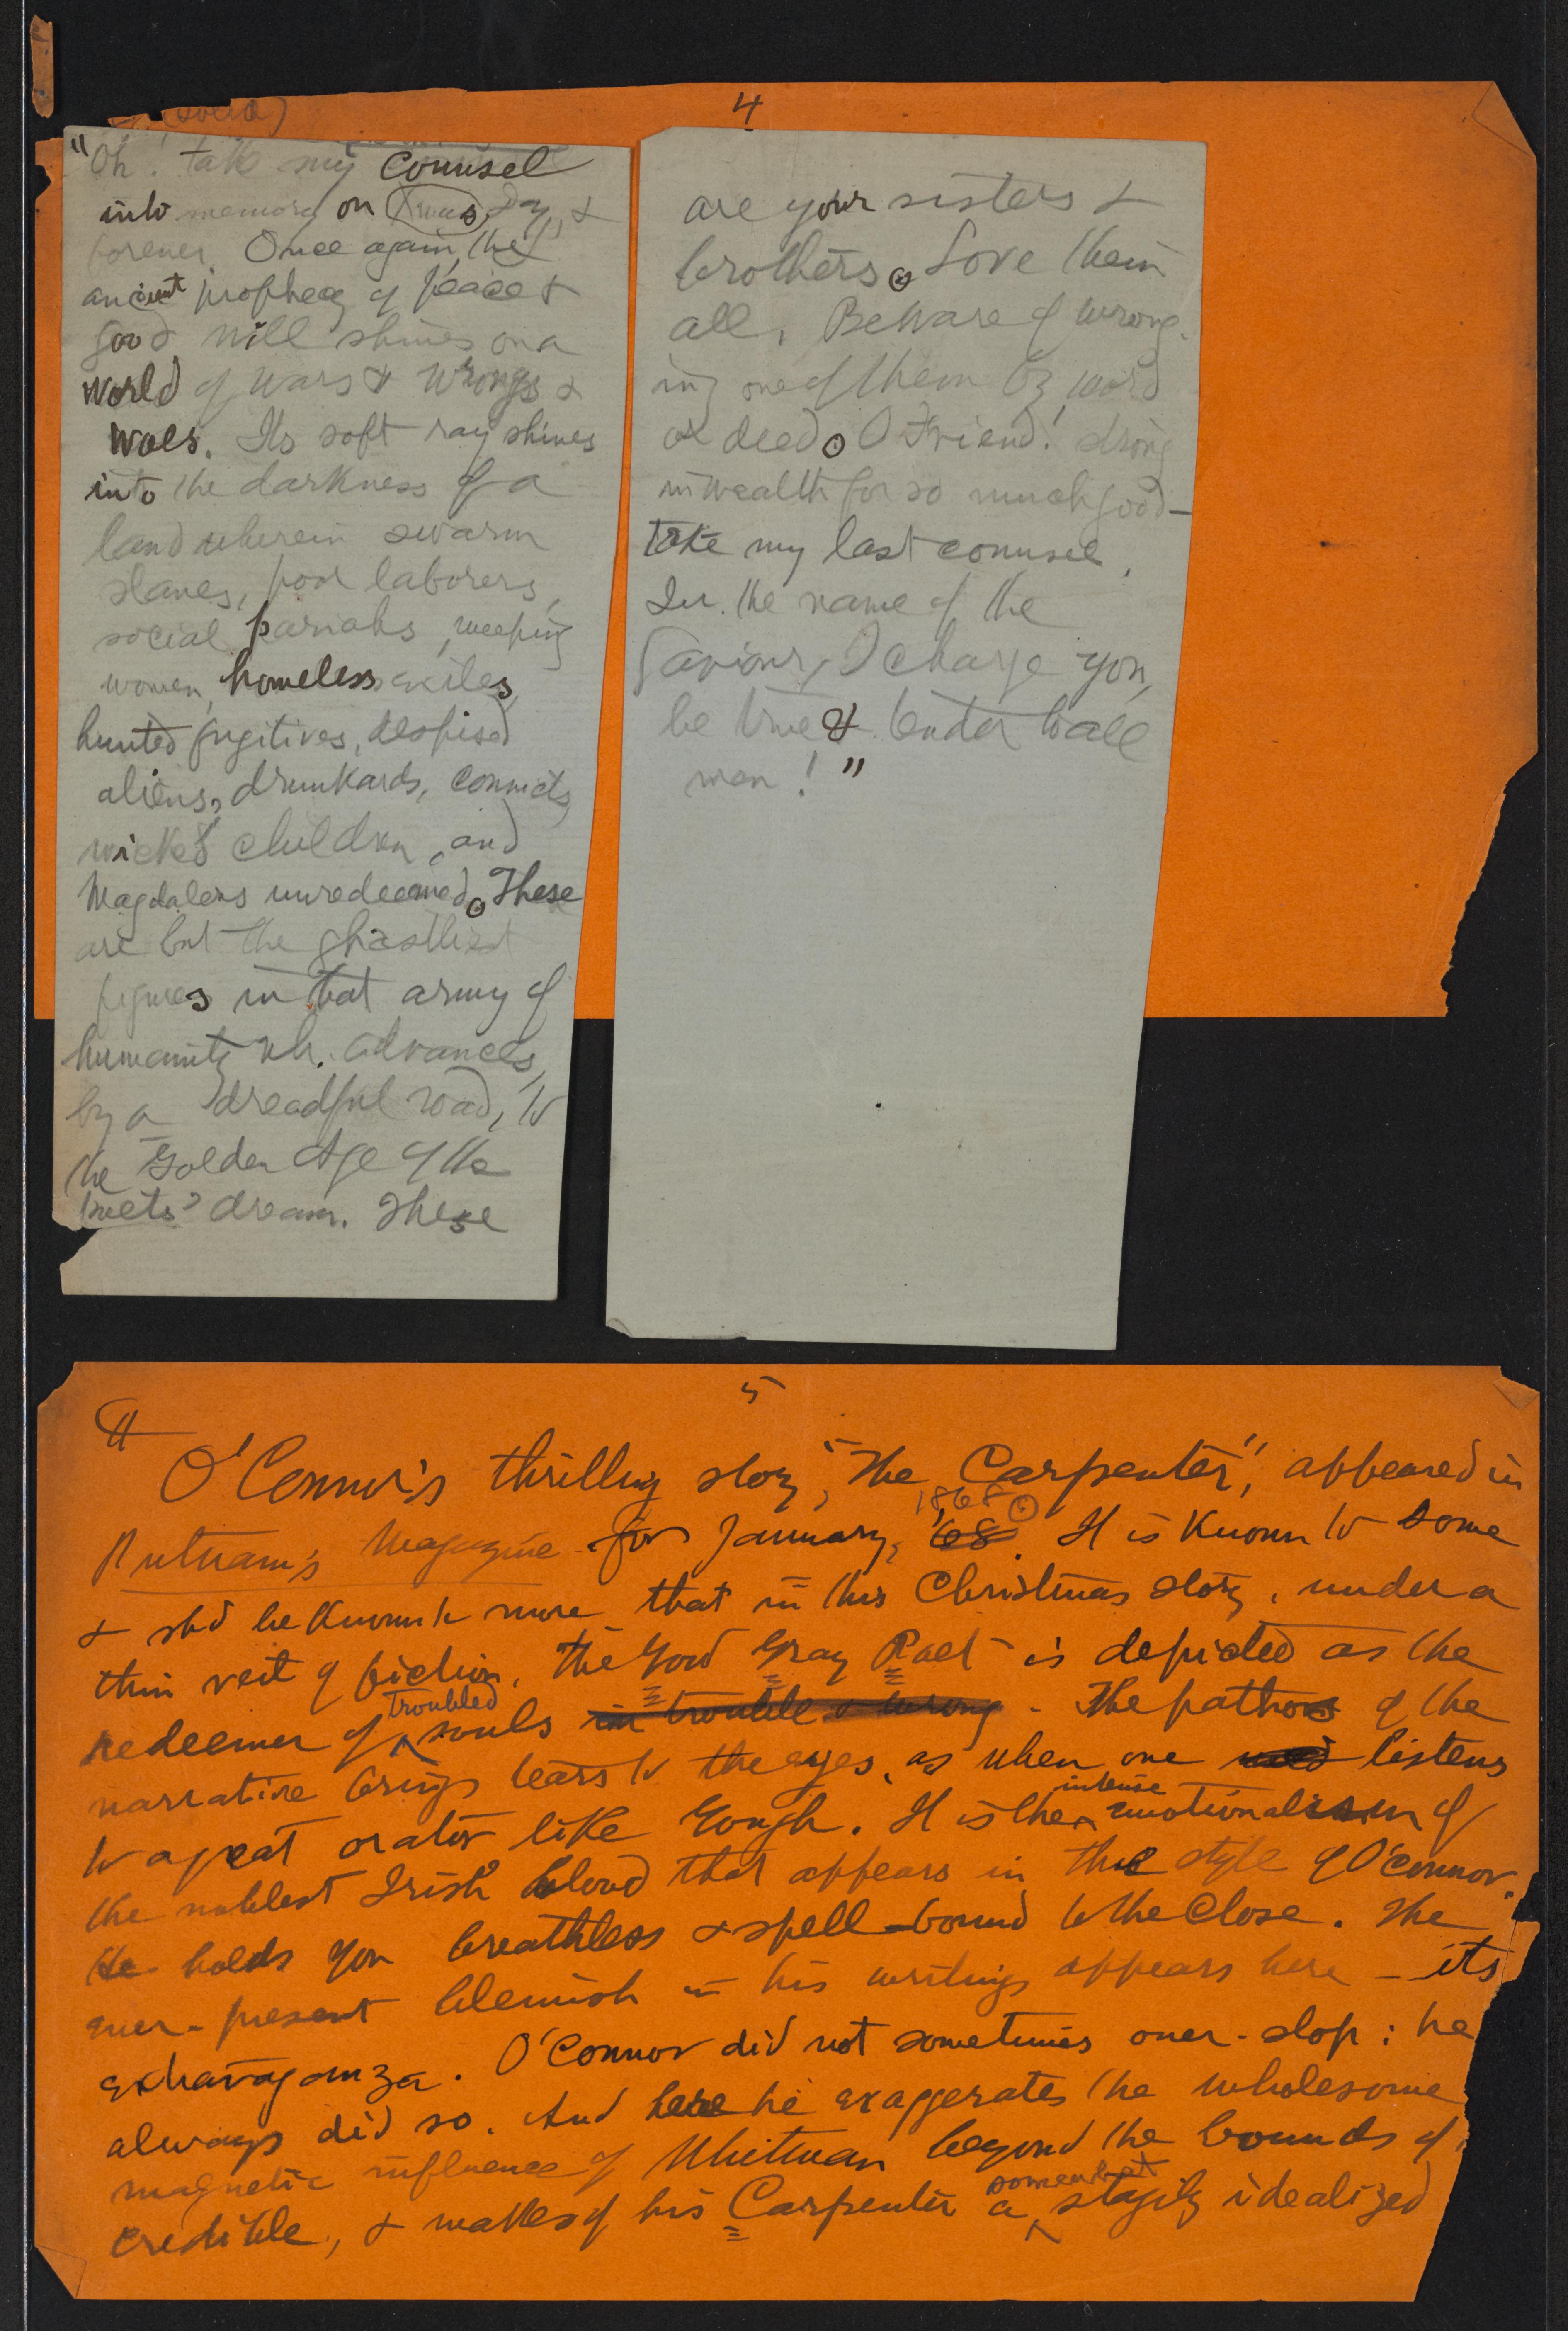 4
(solid)
"Oh! take my counsel
into memory on Xmas Day, &
forever. Once again, the
ancient prophecy of peace &
good will shines on a
world of wars & wrongs &
woes. Its soft ray shines
into the darkness of a
land wherein swarm
slaves, poor laborers,
social pariahs, weeping
women, homeless exiles,
hunted fugitives, despised
aliens, drunkards, convicts,
wicked children, and
Magdalens unredeemed. These
are but the ghastliest
figures in that army of
humanity wh. advances,
by a dreadful road, to
the Golden Age of the
poets' dream. These
are your sisters &
brothers. Love them
all. Beware of wrong-
ing one of them by word
or deed. O Friend! strong
in wealth for so much good—
take my last counsel.
In the name of the
Saviour, I charge you,
be true & tender to all
men!"
5
O'Connor's thrilling story, "The Carpenter", appeared in
Putnam's Magazine for January, '68 1868. It is known to some
& shd be known to more that in this Christmas story, under a
thin veil of fiction, the Good Gray Poet is depicted as the
redeemer of troubled souls in trouble & wrong. The pathos of the
narrative brings tears to the eyes, as when one listens
to a great orator like Gough. It is the intense emotionalism of
the noblest Irish blood that appears in the style of O'Connor.
He holds you breathless & spell-bound to the close. The
ever-present blemish in his writings appears here — its
extravaganza. O'Connor did not sometimes over-slop: he
always did so. And here he exaggerates the wholesome
magnetic influence of Whitman beyond the bounds of
credible, & makes of his Carpenter a somewhat stagily idealized